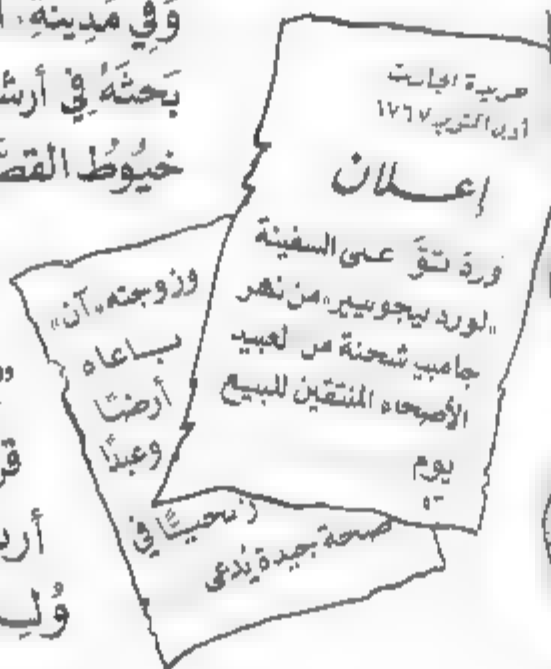 وَفِي مَدِينَةِ
بَحثَهُ فِي أرش
خيُوُط القصَ
جريدة الجازيت
أول أكتوبر ١٧٦٧
إعـــلان
وَردَ توَّ على السفينة
"لورد ليجونيير" من نهر
جامبيا شحنة من العبيد
الأصحاء المنتقين للبيع
يوم
وزوجته "آن"
باعاه
أرضًا
وعبدًا
زنجيًّا في
صحة جيدة يُدعى
قر
أرب
وُلِ